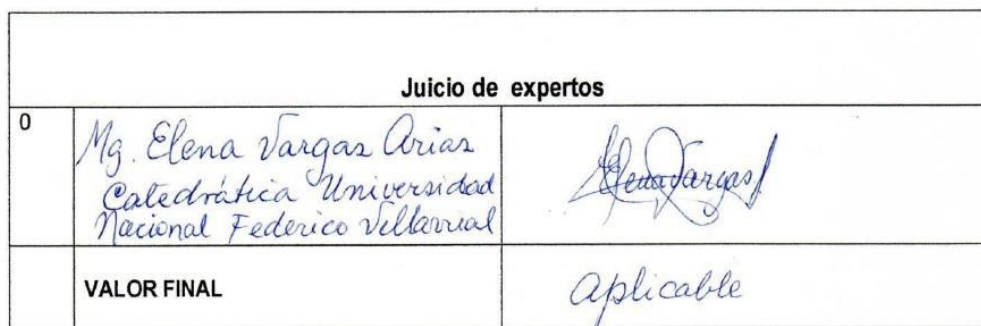 Juicio de expertos
0
Mg. Elena Vargas Arias
Catedrática Universidad
Nacional Federico Villarreal
Elena Vargas
VALOR FINAL
aplicable